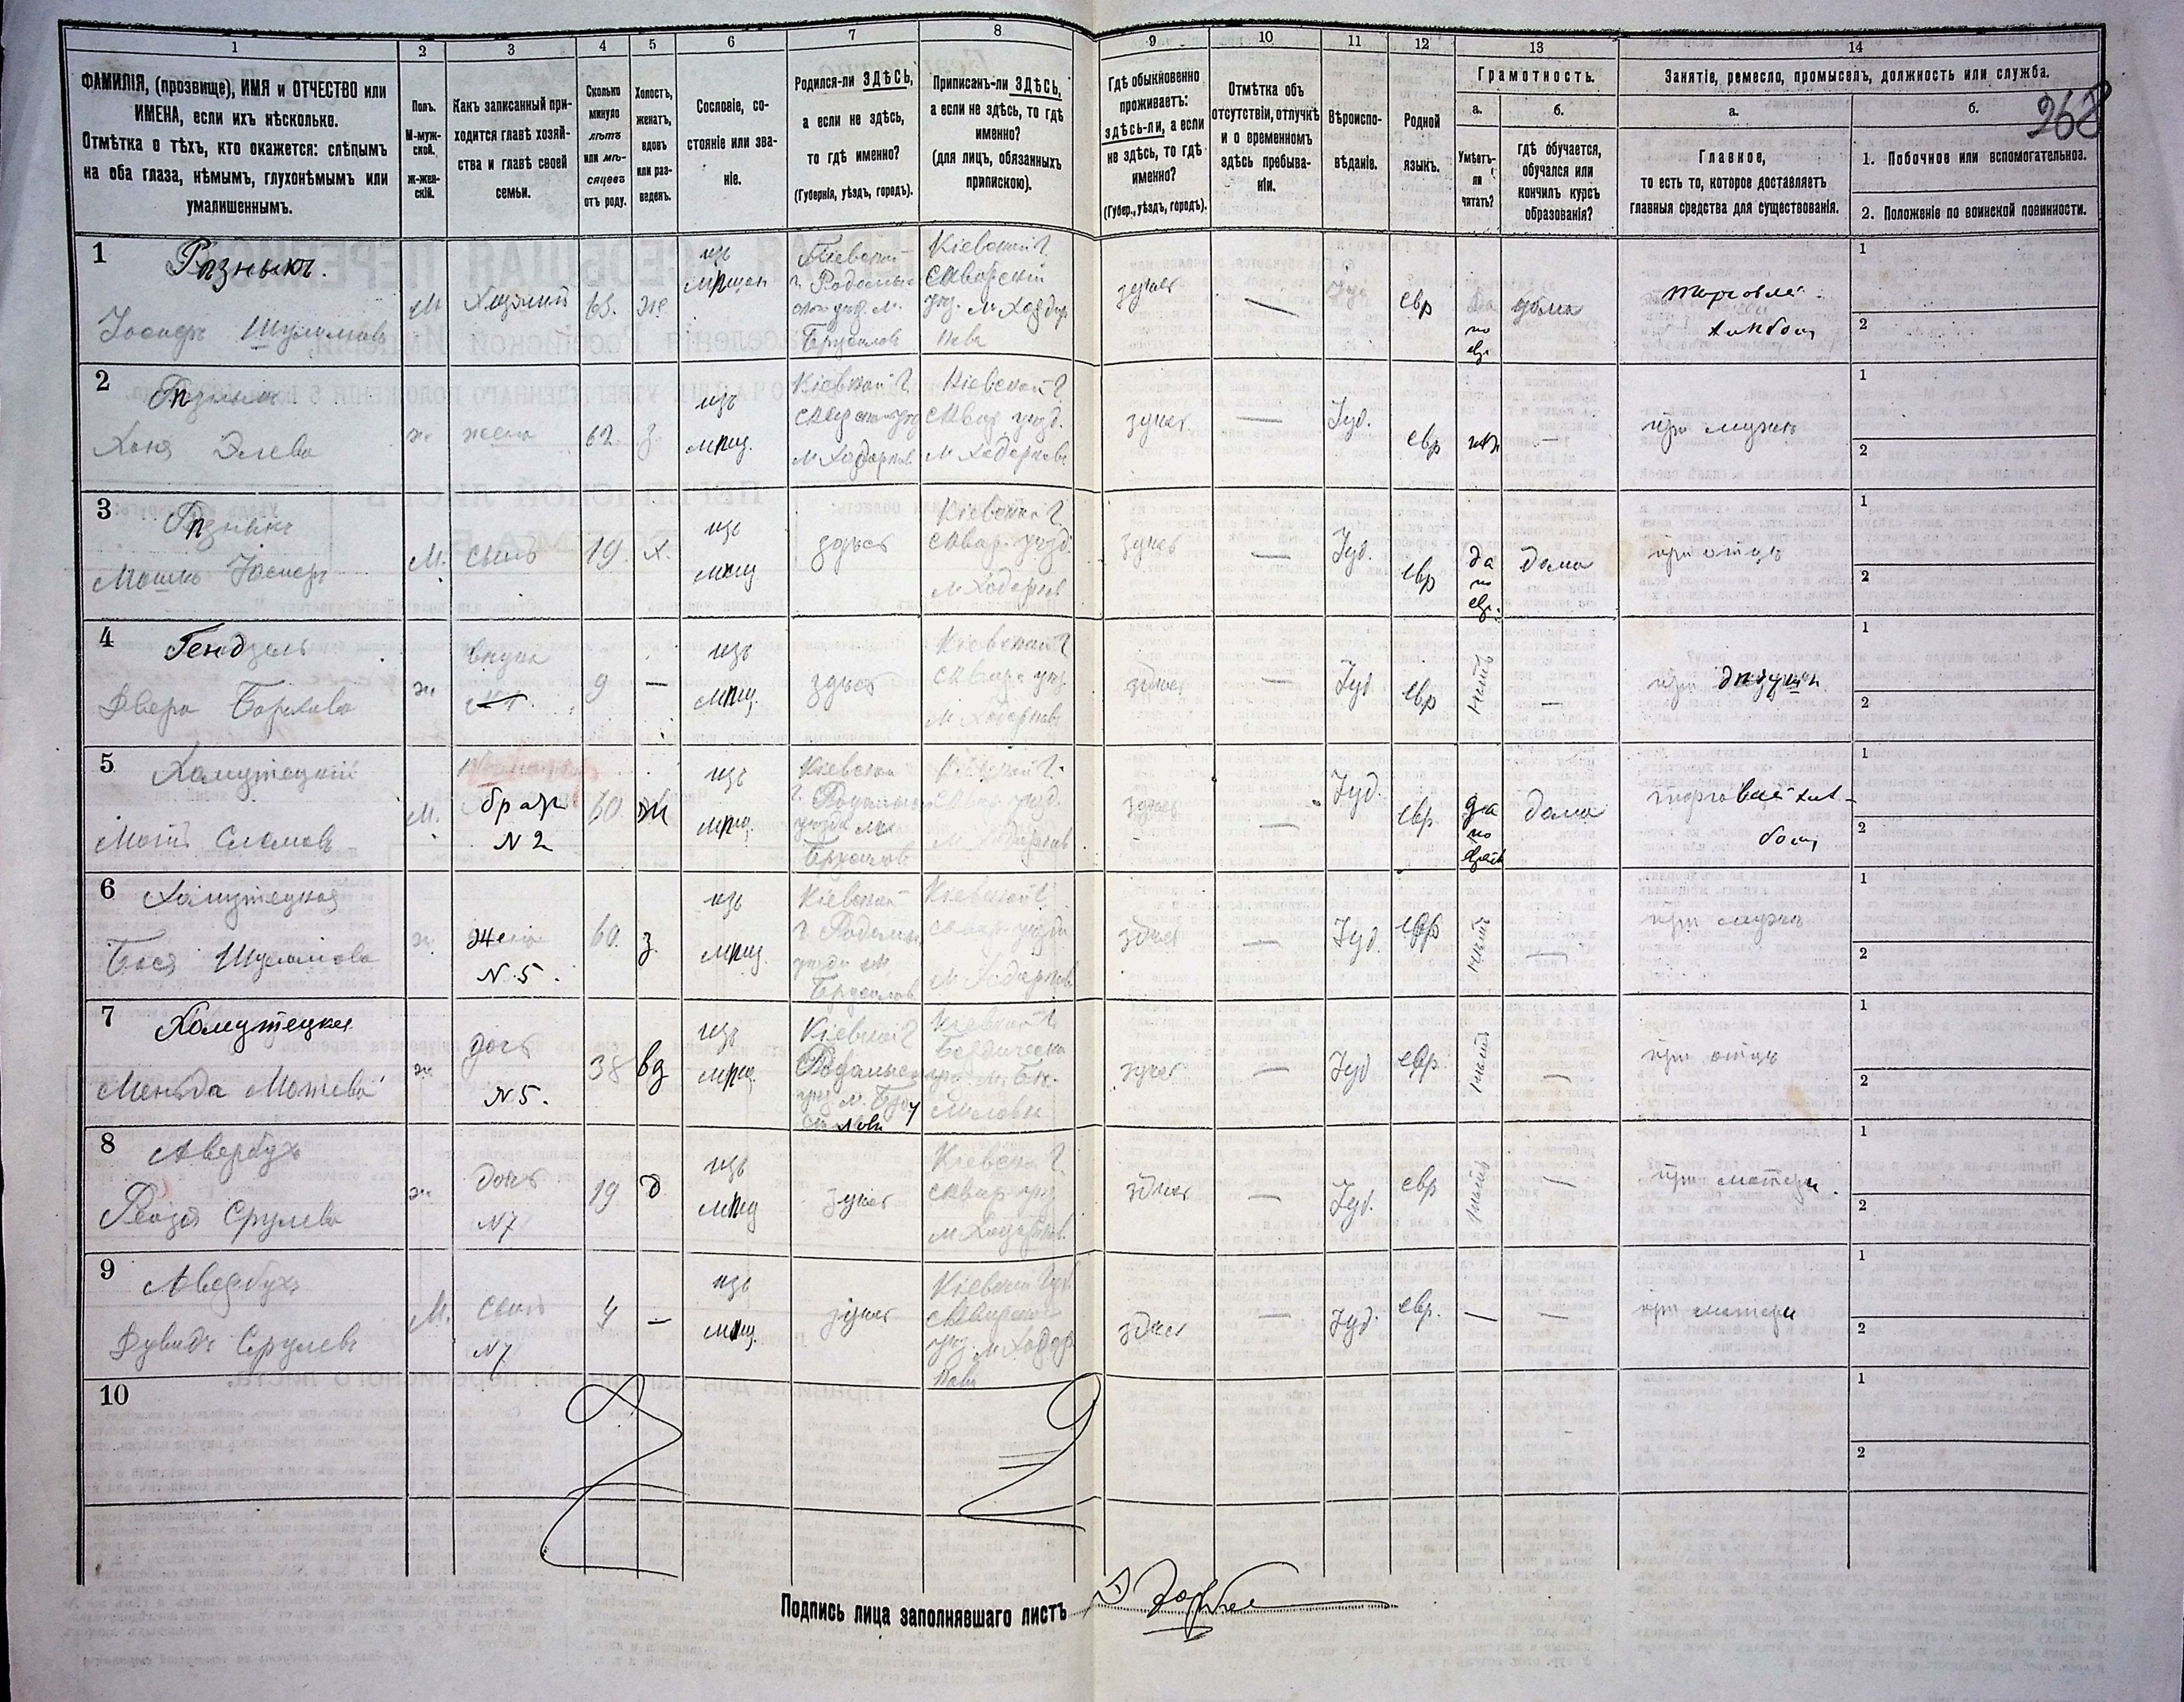 1
2
3
4
5
6
7
8
9
10
11
12
13
14
ФАМИЛІЯ, (прозвище), ИМЯ и ОТЧЕСТВО или
ИМЕНА, если ихъ нѣсколько.
Отмѣтка о тѣхъ, кто окажется: слѣпымъ
на оба глаза, нѣмымъ, глухонѣмымъ или
умалишеннымъ.
Полъ.
М-муж-
ской.
Ж-жен-
скій.
Какъ записанный при-
ходится главѣ хозяй-
ства и главѣ своей
семьи.
Сколько
минуло
лѣтъ
или мѣ-
сяцевъ
отъ роду.
Холостъ,
женатъ,
вдовъ
или раз-
веденъ.
Сословіе, со-
стояніе или зва-
ніе.
Родился-ли ЗДѢСЬ,
а если не здѣсь,
то гдѣ именно?
(Губернія, уѣздъ, городъ).
Приписанъ-ли ЗДѢСЬ,
а если не здѣсь, то гдѣ
именно?
(для лицъ, обязанныхъ
припискою).
Гдѣ обыкновенно
проживаетъ:
здѣсь-ли, а если
не здѣсь, то гдѣ
именно?
(Губер., уѣздъ, городъ).
Отмѣтка объ
отсутствіи, отлучкѣ
и о временномъ
здѣсь пребыва-
ніи.
Вѣроиспо-
вѣданіе.
Родной
языкъ.
Грамотность.
а.
б.
Умѣетъ-
ли
читать?
гдѣ обучается,
обучался или
кончилъ курсъ
образованія?
Занятіе, ремесло, промыселъ, должность или служба.
а.
б.
268
Главное,
то есть то, которое доставляетъ
главныя средства для существованія.
1. Побочное или вспомогательное.
2. Положеніе по воинской повинности.
1
Рѣзникъ.
Іосифъ Шулимовъ
м
Хозяинъ
63.
же
изъ
мѣщан
Кіевской
г. Радомы
уѣзд. м.
Брусилов
Кіевской г.
Сквирскій
уѣз. м. Ходор
кова
здѣсь
—
Іуд
евр
да
по
евр
дома
торговля
хлѣбом
1
2
2
Рѣзник
Хоня Элева
ж
жена
62.
з.
изъ
мѣщ.
Кіевской г.
м Ходорков
Кіевской г.
Сквир. уѣзд.
м Ходоркова
здѣсь
—
Іуд.
евр
нѣт
—
при мужѣ
1
2
3
Рѣзникъ
Мошко Іосиф
М.
сынъ
19.
х.
изъ
мѣщ
здѣсь
Кіевской г.
Сквир. уѣзд.
м Ходорков
здѣсь
—
Іуд.
евр
да
по
евр.
дома
при отцѣ
1
2
4
Гендзель
Двера Борхова
ж
внука
9
—
изъ
мѣщ.
здѣсь
Кіевской г.
Сквир. уѣз.
м Ходоркова
здѣсь
—
Іуд
евр
нѣтъ
—
при дѣдушкѣ
1
2
5
Хомутецкій
Мотъ Слемовъ
М.
братъ
N 2
60.
ж
изъ
мѣщ.
Кіевской
г. Радомы
уѣзда м
Брусилов
Кіевской г.
Сквир. уѣзд
м Ходорков
здѣсь
—
Іуд.
евр.
да
по
дома
торговля хлѣ-
бом
1
2
6
Хомутецкая
Бася Шулимова
ж.
жена
N.5.
60.
з.
изъ
мѣщ.
Кіевской
г. Радомы
уѣзда м
Брусилов
Кіевской г.
Сквир. уѣзда
м Ходорков
здѣсь
—
Іуд.
евр
нѣтъ
—
при мужѣ
1
2
7
Хомутецкая
Меньда Мотева
ж
дочь
N 5.
38
вд
изъ
мѣщ.
Кіевской г.
уѣз м. Бру
Кіевской г.
Бердическа
здѣсь
—
Іуд
евр.
нѣтъ
—
при отцѣ
1
2
8
Авербухъ
Рейзя Срулева
ж
дочь
N 7
19
д
изъ
мѣщ
здѣсь
Кіевской г.
Сквир. уѣз
м Ходорков.
здѣсь
—
Іуд.
евр
нѣтъ
—
при матери.
1
2
9
Авербухъ
Дувидъ Срулевъ
М.
сынъ
N 7
4
—
изъ
мѣщ.
здѣсь
Кіевской губ
Сквирской
уѣз. м Ходор
кова
здѣсь
—
Іуд.
евр.
—
—
при матери
1
2
10
1
2
Подпись лица заполнявшаго листъ